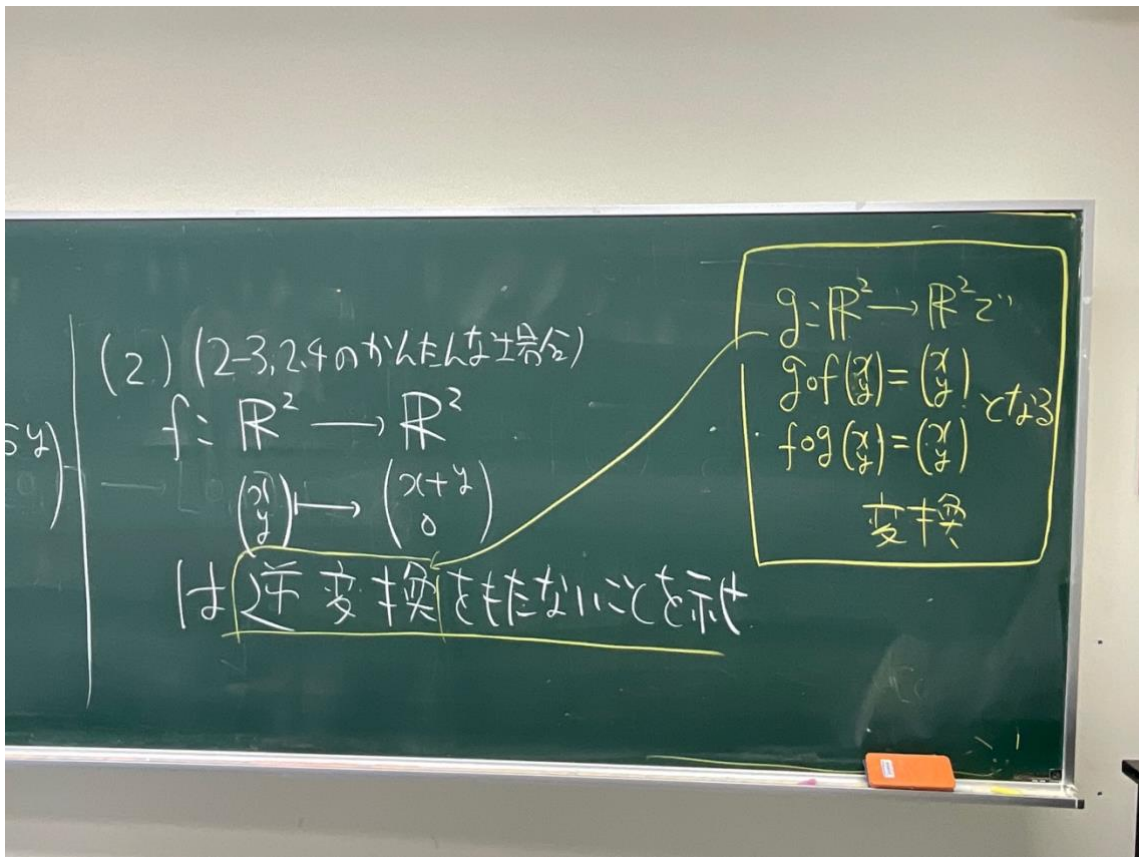 5y)
(2) (2-3, 2.4のかんたんな場合)
f: ℝ² → ℝ²
(x y) ↦ (x+y 0)
は逆変換をもたないことを示せ
g: ℝ² → ℝ² で
g∘f(x y) = (x y)
f∘g(x y) = (x y) となる
変換